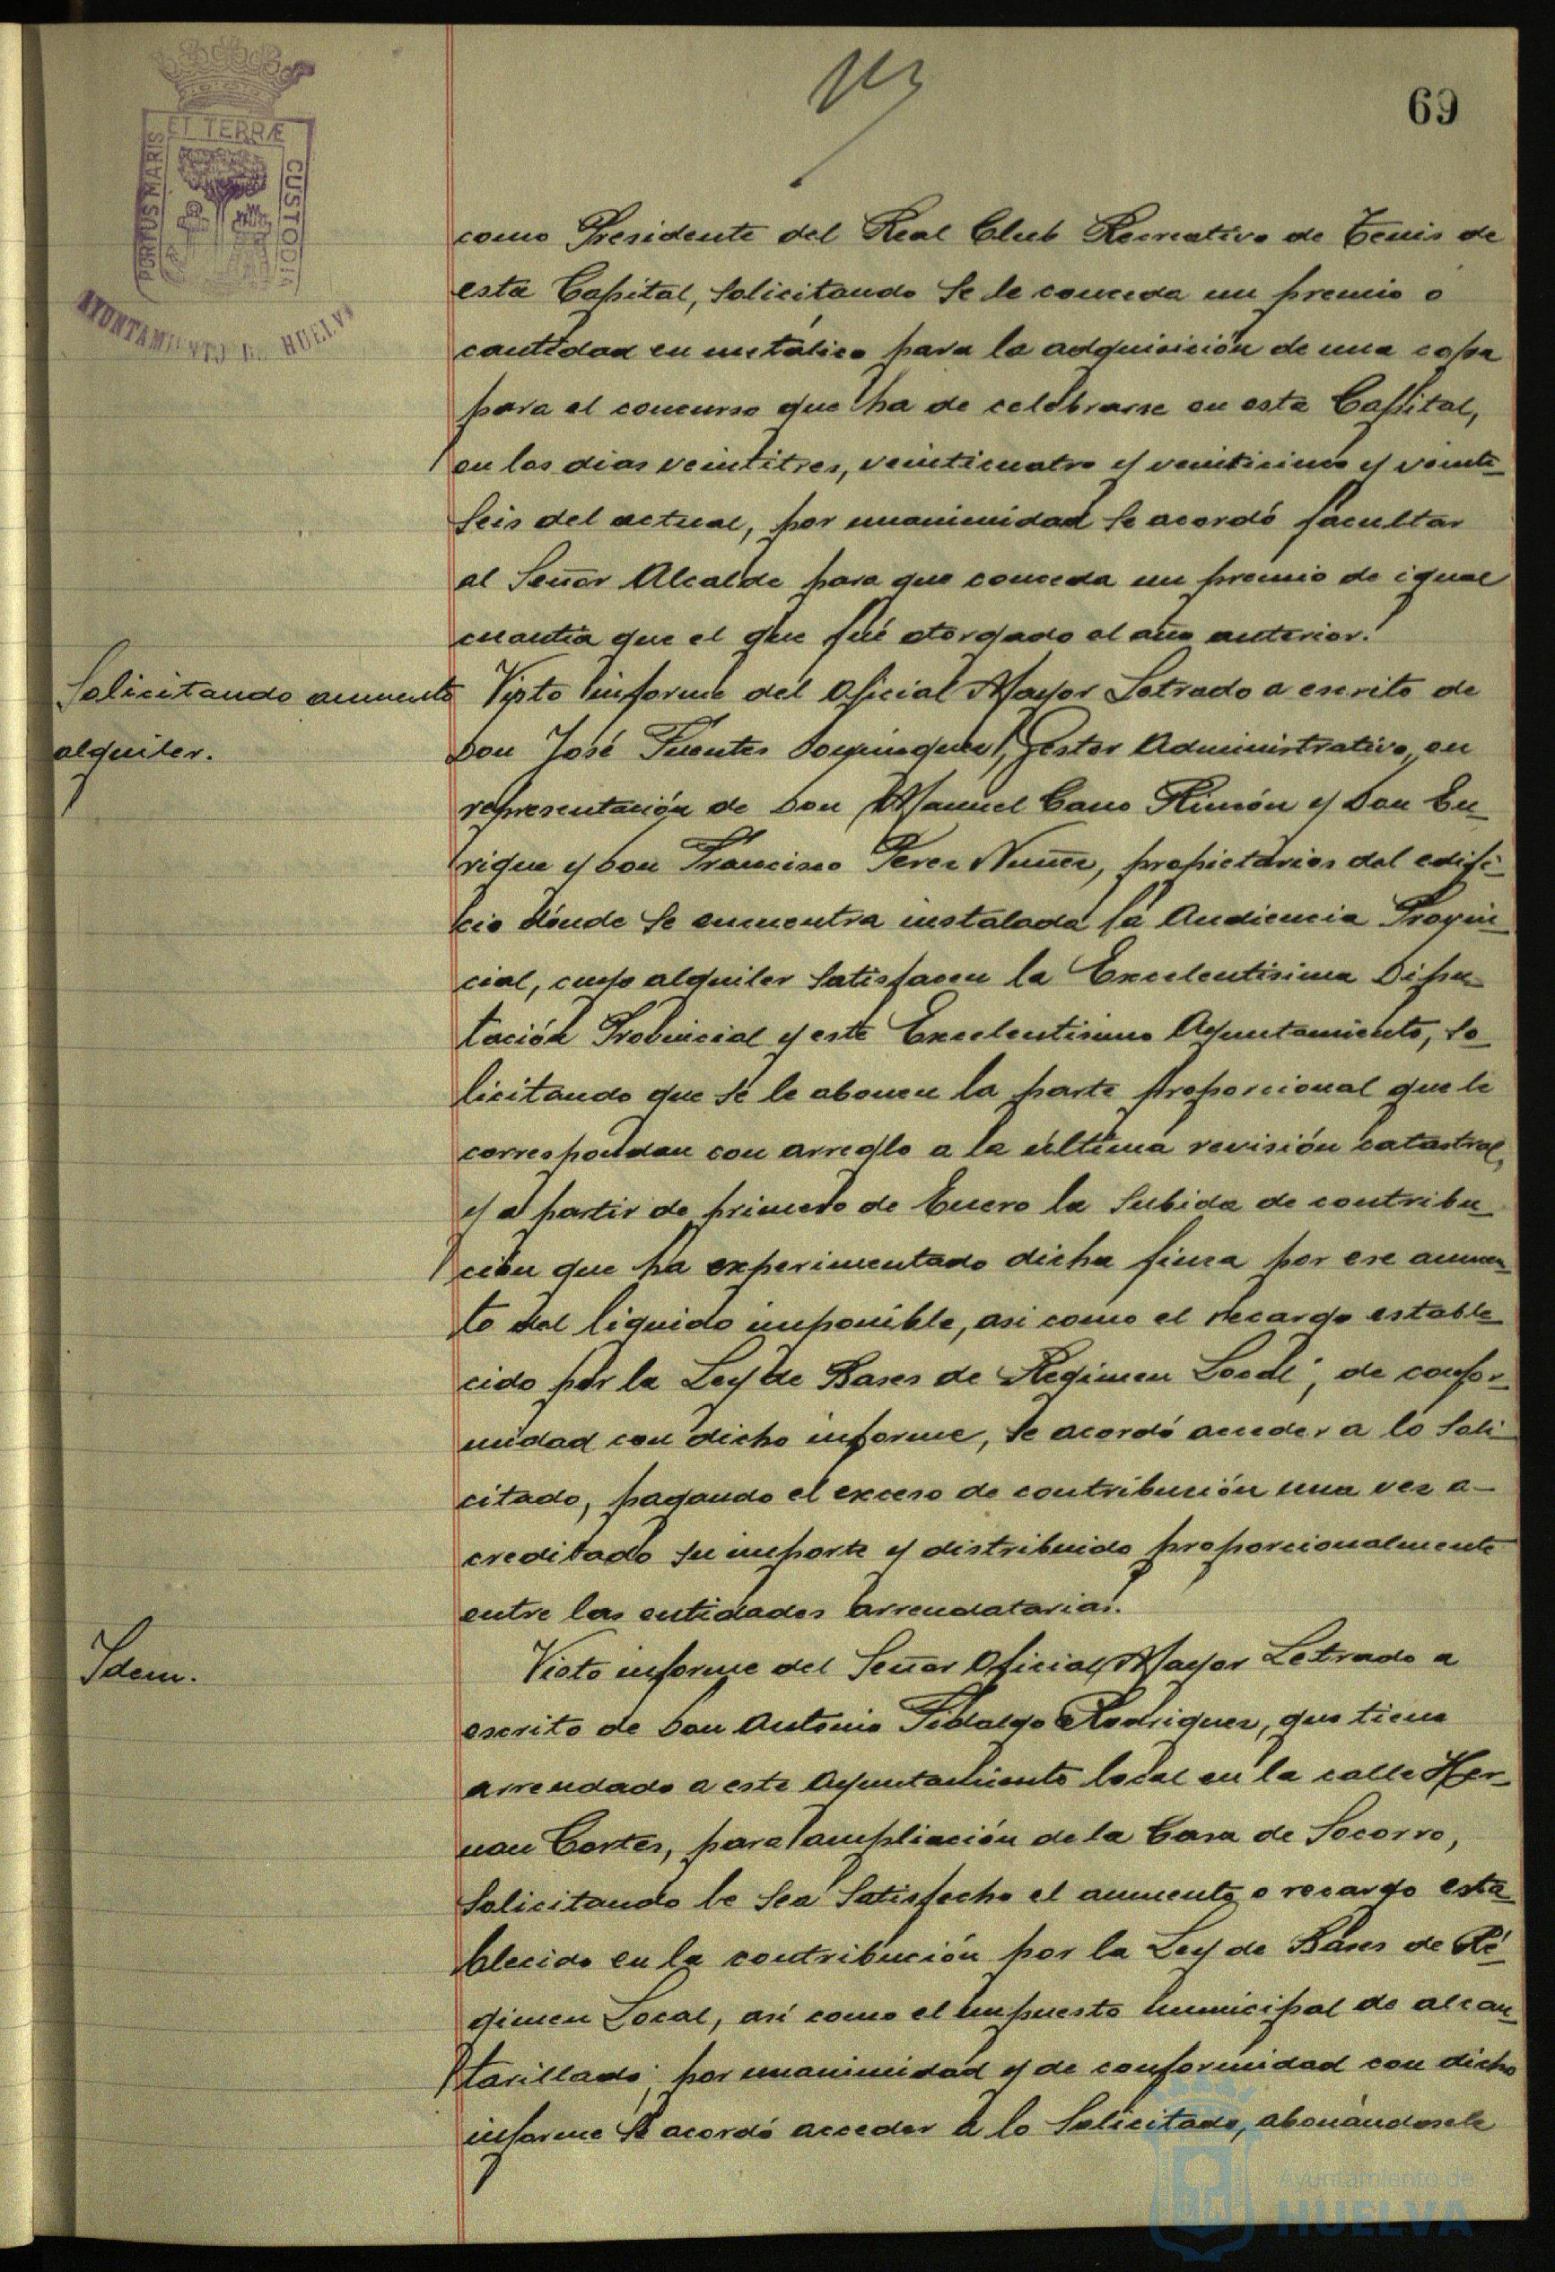 69
PORTUS MARIS ET TERRÆ CUSTODIA
AYUNTAMIENTO DE HUELVA
como Presidente del Real Club Recreativo de Tenis de
esta Capital, solicitando se le conceda un premio o
cantidad en metálico para la adquisición de una copa
para el concurso que ha de celebrarse en esta Capital,
en los dias veintitres, veinticuatro y veinticinco y veinti-
seis del actual, por unanimidad se acordó facultar
al Señor Alcalde para que conceda un premio de igual
cuantia que el que fué otorgado el año anterior.
Solicitando aumento
alquiler.
Visto informe del Oficial Mayor Letrado a escrito de
Don José Fuentes Gestor Administrativo, en
representación de Don Manuel Cano Rincón y Don En-
rique y Don Francisco Perez Nuñez, propietarios del edifi-
cio dónde se encuentra instalada la Audiencia Provin-
cial, cuyo alquiler satisfacen la Excelentisima Dipu-
tación Provincial y este Excelentisimo Ayuntamiento, so-
licitando que se le abonen la parte proporcional que le
correspondan con arreglo a la última revisión catastral,
y a partir de primero de Enero la subida de contribu-
ción que ha experimentado dicha finca por ese aumen-
to del liquido imponible, asi como el recargo estable-
cido por la Ley de Bases de Regimen Local; de confor-
midad con dicho informe, se acordó acceder a lo soli-
citado, pagando el exceso de contribución una vez a-
creditado su importe y distribuido proporcionalmente
entre las entidades arrendatarias.
Idem.
Visto informe del Señor Oficial Mayor Letrado a
escrito de Don Antonio Fidalgo Rodriguez, que tiene
arrendado a este Ayuntamiento local en la calle Her-
nan Cortés, para ampliación de la Casa de Socorro,
solicitando le sea satisfecho el aumento o recargo esta-
blecido en la contribución por la Ley de Bases de Ré-
gimen Local, así como el impuesto municipal de alcan-
tarillado; por unanimidad y de conformidad con dicho
informe se acordó acceder a lo solicitado, abonándosele
Ayuntamiento de
HUELVA